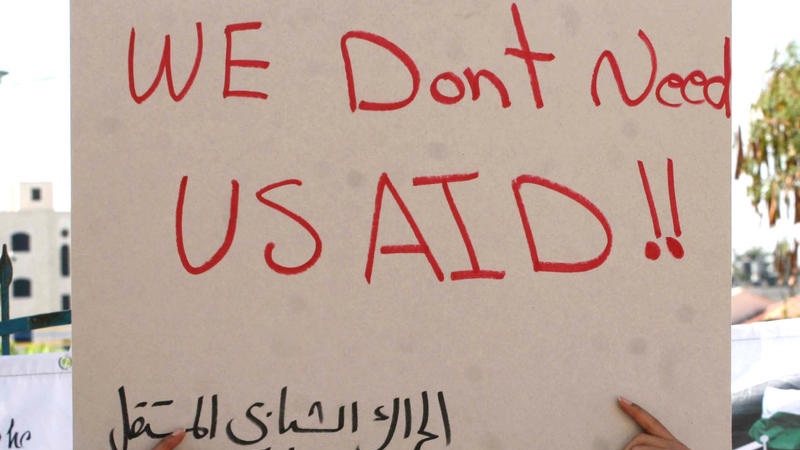 WE Dont Need
US AID!!
الحراك الشبابي المستقل